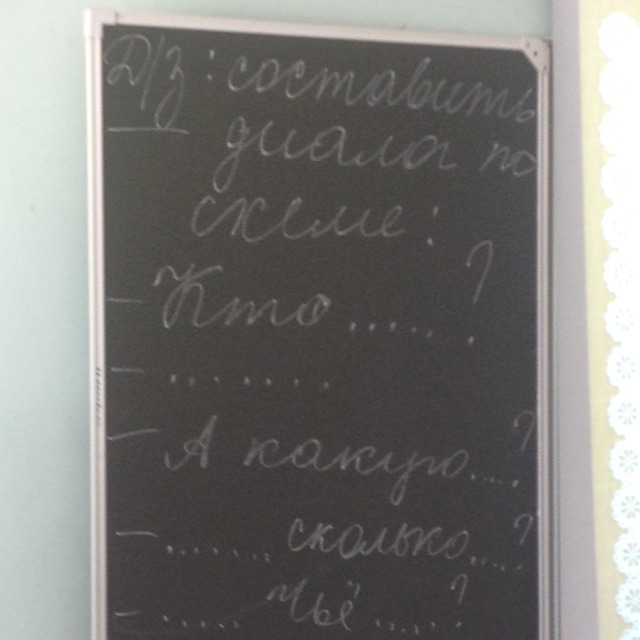 Д/З: составить
диалог по
схеме:
- Кто ......?
- .......
- А какую.....?
- ....... сколько.....?
- ..... Чьё .....?